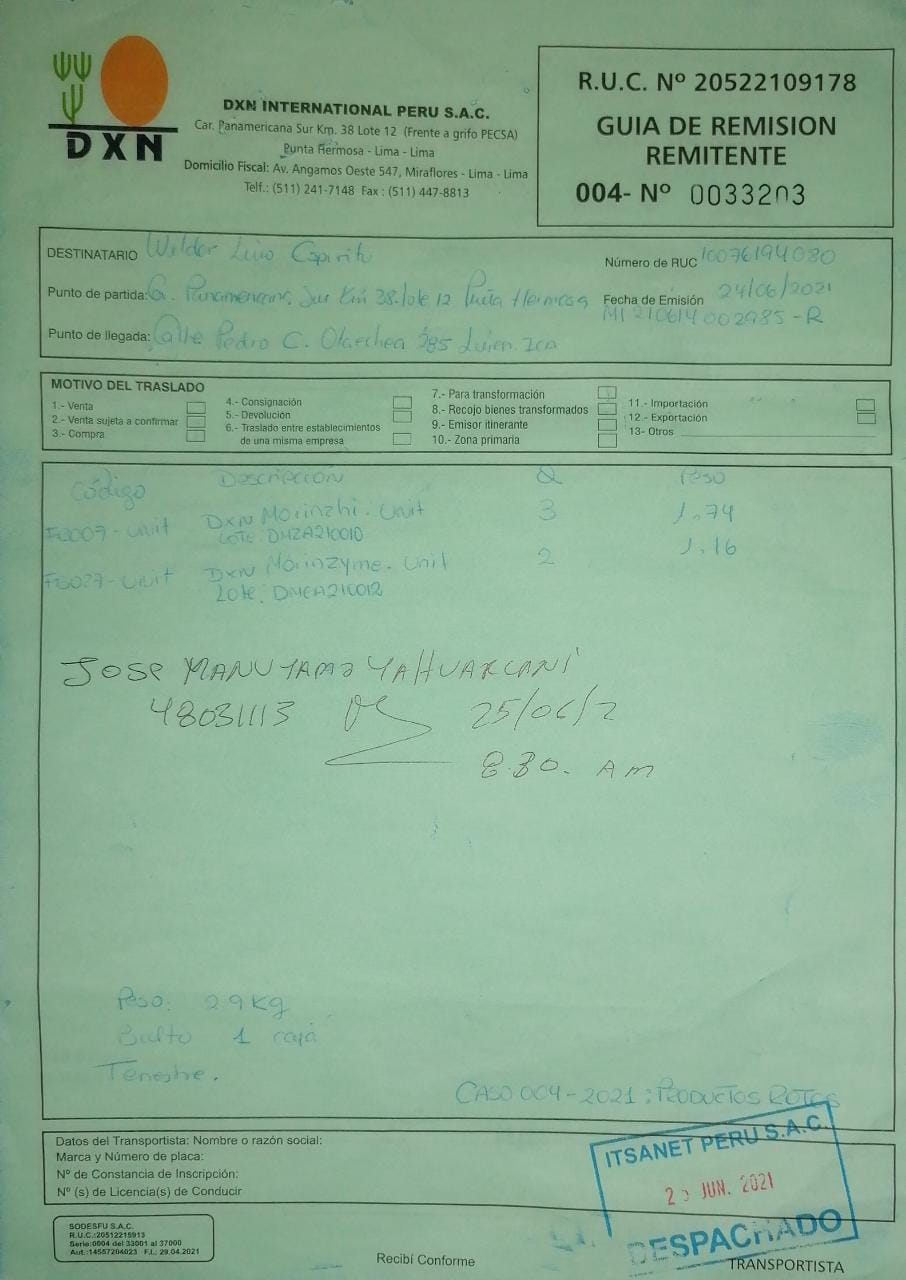 DXN
DXN INTERNATIONAL PERU S.A.C.
Car. Panamericana Sur Km. 38 Lote 12 (Frente a grifo PECSA)
Punta Hermosa - Lima - Lima
Domicilio Fiscal: Av. Angamos Oeste 547, Miraflores - Lima - Lima
Telf.: (511) 241-7148 Fax : (511) 447-8813
R.U.C. Nº 20522109178
GUIA DE REMISION
REMITENTE
004- Nº 0033203
DESTINATARIO Wilder Lino Espiritu
Número de RUC 10076194080
Punto de partida: Panamericana Sur Km 38. lote 12 Punta Hermosa
Fecha de Emisión 24/06/2021
MI210614002985-R
Punto de llegada: Calle Pedro C. Olaechea 285 Ica
MOTIVO DEL TRASLADO
1.- Venta
2.- Venta sujeta a confirmar
3.- Compra
4.- Consignación
5.- Devolución
6.- Traslado entre establecimientos
de una misma empresa
7.- Para transformación
8.- Recojo bienes transformados
9.- Emisor itinerante
10.- Zona primaria
11.- Importación
12.- Exportación
13- Otros
Código Descripción Q Peso
DXN Morinzhi. Unit 3 1.74
LOTE: DMZA210010
DXN Morinzyme. Unit 2 1.16
Lote: DMEA210012
JOSE MANUYAMA YAHUARCANI
48031113 25/06/2
8:30. AM
Peso: 2.9 kg
Bulto 1 caja
Terrestre.
CASO 004-2021: PRODUCTOS ROTOS
Datos del Transportista: Nombre o razón social:
Marca y Número de placa:
Nº de Constancia de Inscripción:
Nº (s) de Licencia(s) de Conducir
ITSANET PERU S.A.C.
JUN. 2021
DESPACHADO
SODESFU S.A.C.
R.U.C.:20512215913
Serie:0004 del 33001 al 37000
Aut.:14557204023 F.I.: 29.04.2021
Recibí Conforme
TRANSPORTISTA